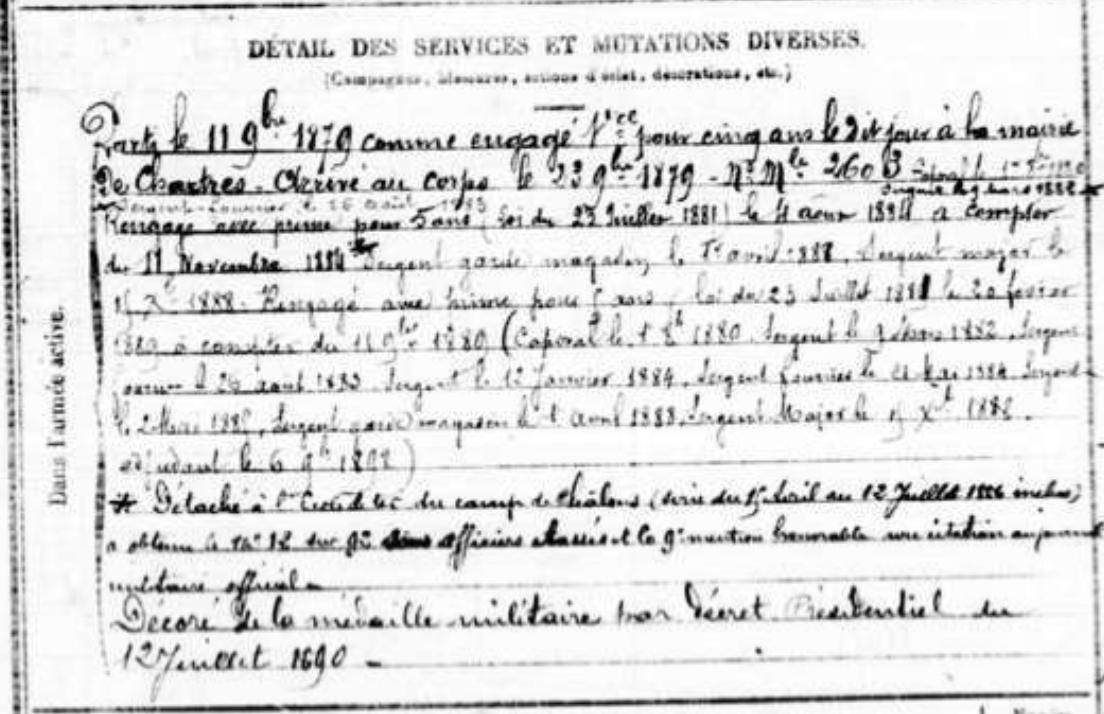 DÉTAIL DES SERVICES ET MUTATIONS DIVERSES.
(Campagnes, blessures, actions d'éclat, décorations, etc.)
Parti le 11 9bre 1879 comme engagé Vre pour cinq ans le dit jour à la mairie
De Chartres - Arrivé au corps le 23 9bre 1879 - No Mle 2603 Caporal le
Sergent le 9 mars 1882
Sergent-Fourrier le 26 août 1883
Rengagé avec prime pour 5 ans (Loi du 23 Juillet 1881) le 4 août 1884 à compter
du 11 Novembre 1884 Sergent garde magasin le 1er avril 1888, Sergent major le
Xbre 1888. Rengagé avec prime pour 5 ans loi du 23 Juillet 1881 le 20 février
1889 à compter du 11 9bre 1889 (Caporal le 1er 8bre 1880, Sergent le 9 Mars 1882, Sergent
fourrier le 26 août 1883. Sergent le 12 Janvier 1884, Sergent fourrier le 21 Mai 1884 Sergent
le 2 Mai 1885, Sergent garde magasin le 1er avril 1888, Sergent Major le Xbre 1888.
adjudant le 6 9bre 1892)
* Détaché à l'École de tir du camp de Châlons (série du 15 Avril au 12 Juillet 1886 inclus)
a obtenu le No 12 sur 92 sous officiers classés et la 9e mention honorable une citation au journal
militaire officiel -
Décoré de la médaille militaire par décret Présidentiel du
12 Juillet 1890 -
Dans l'armée active.